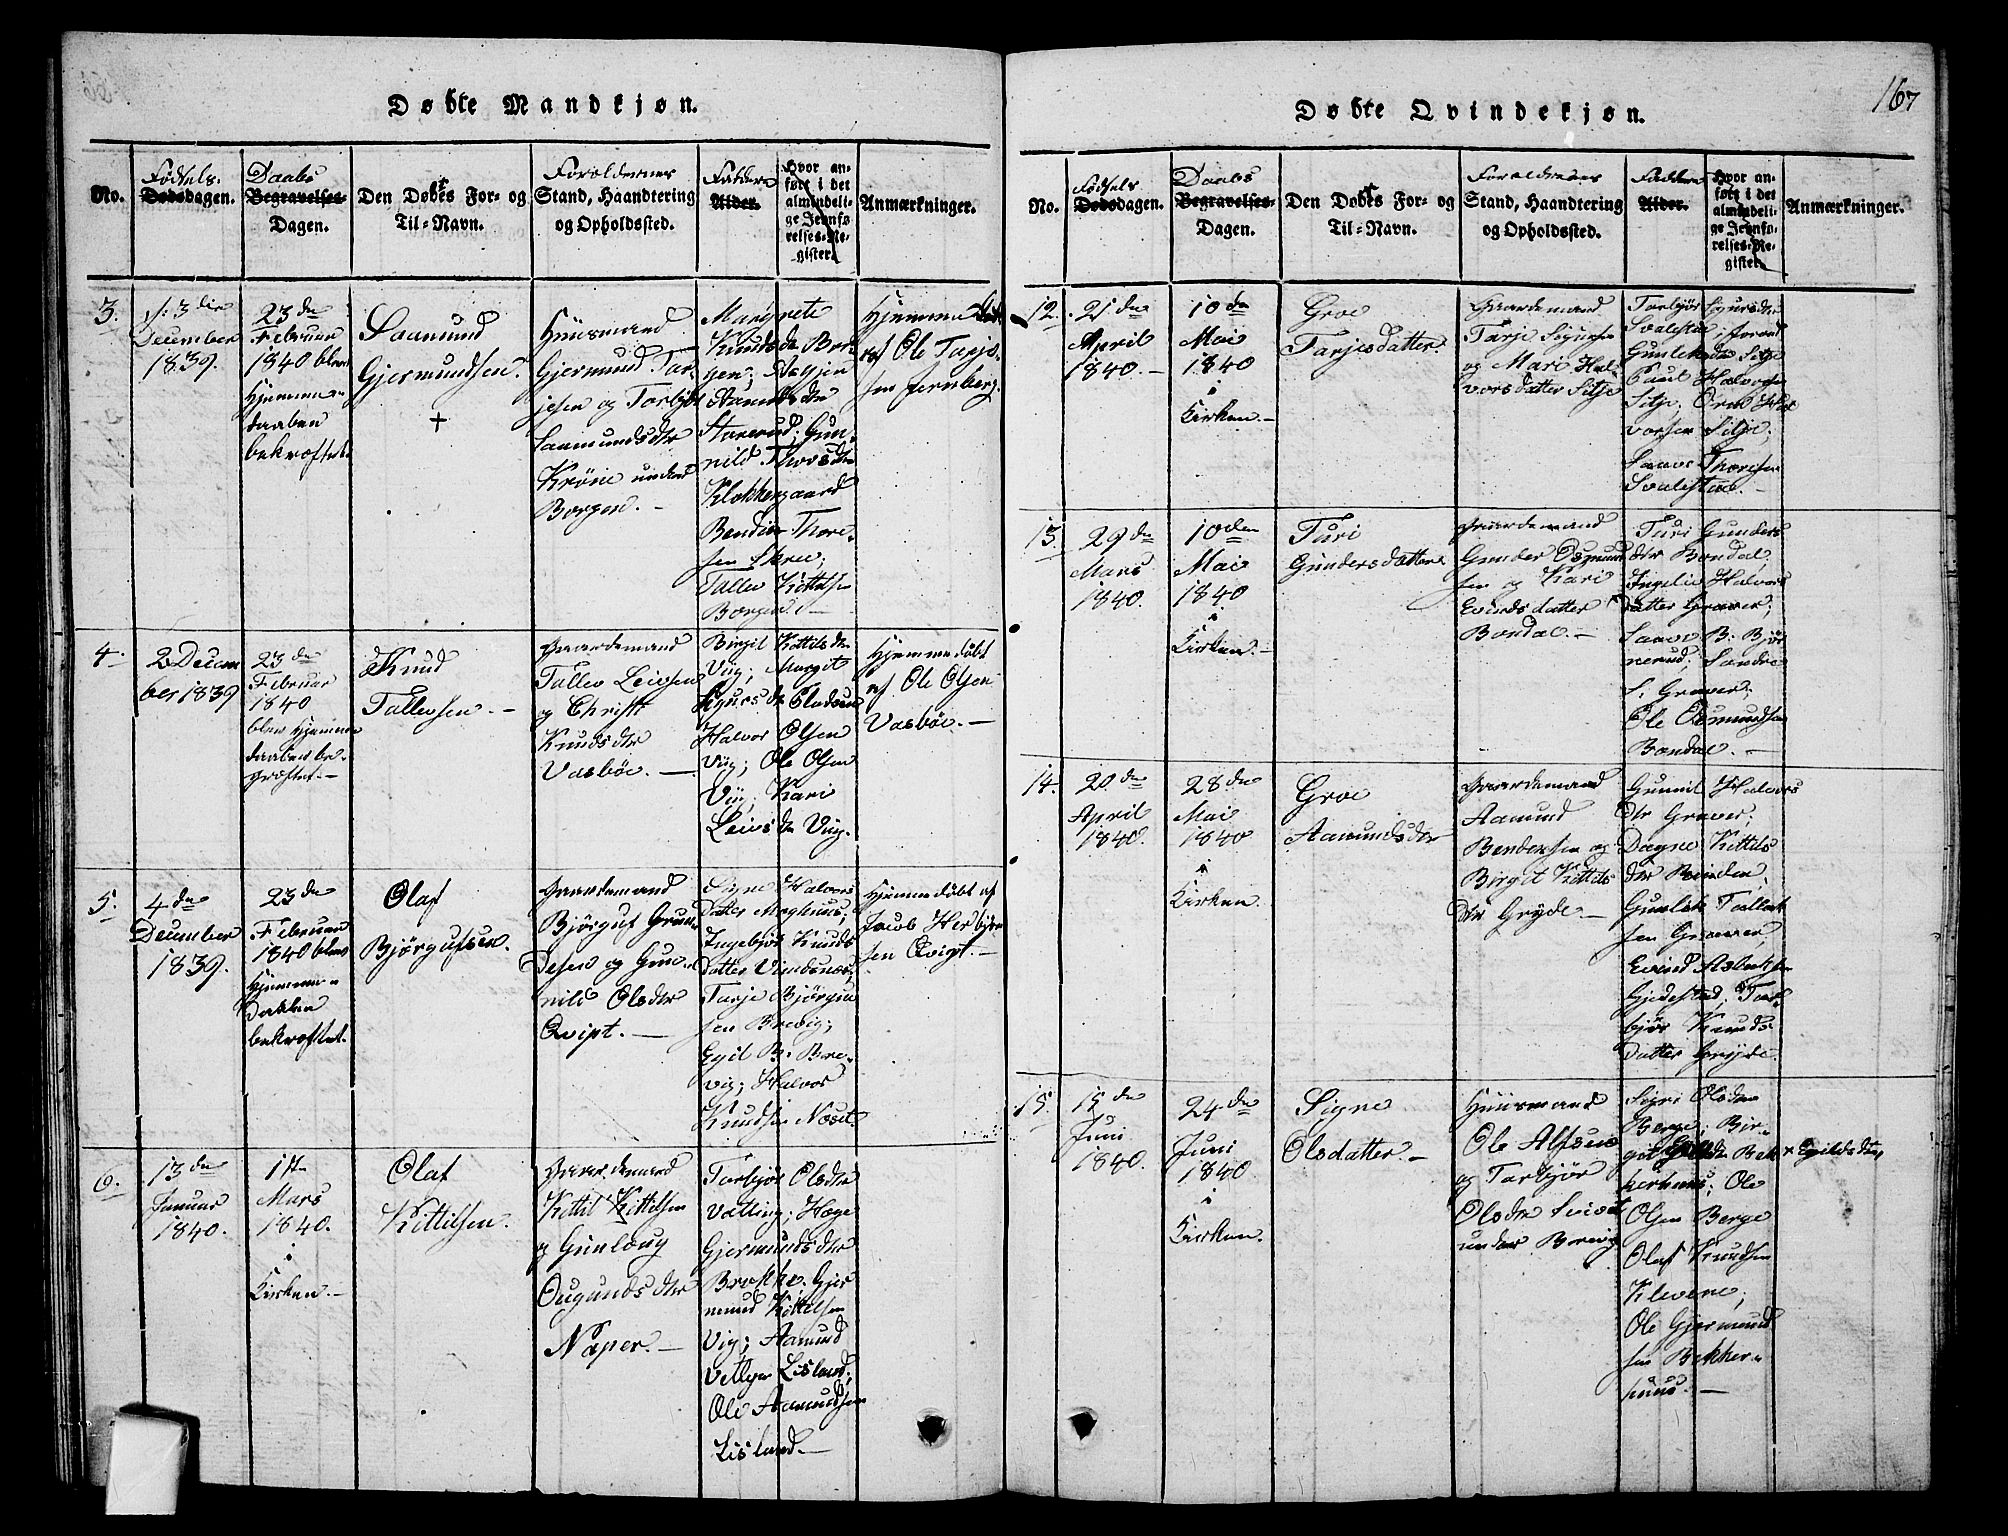 Døbte Mandkjøn.
No.
Fødsels-
Dødsdagen.
Daabs
Begravelses-
Dagen.
Den Døbtes For- og
Til-Navn.
Forældrenes
Stand, Haandtering
og Opholdssted.
Faddere
Alder.
Hvor an-
ført i det
almindeli-
ge Jevnfø-
relses-Re-
gister.
Anmærkninger.
3.
3die
December
1839.
23de
Februar
1840 blev
Hjemme-
daaben
bekræftet.
Saamund
Gjermundsen.
+
Huusmand
Gjermund Tar-
jesen og Torbjør
Saamundsdtr
Krøne under
Borgen. -
Margrete
Knudsdr Bor-
gen; Dagne
Aamundsdr
Stavrud; Gun-
nild Thorsdr
Klokkergaard
Bendix Thore-
sen Skree;
Tallev Kittilsen
Borgen. -
Hjemmedøbt
af Ole Tarje-
sen Fernberg.
4.
2 Decem
ber 1839
23de
Februar
1840
blev Hjemme
daaben be-
kræftet. -
Knud
Tallevsen. -
Gaardemand
Tallev Leivsen
og Christi
Knudsdtr
Vasbøe. -
Birgit Kittilsdr
Viig; Margit
Sigursdr
Halvor Olsen
Viig; Ole Olsen
Viig; Kari
Leivsdr Viig.
Hjemmedøbt
af Ole Olsen
Vasbøe. -
5.
4de
December
1839.
23de
Februar
1840 blev
Hjemme-
Daaben
bekræftet.
Olaf
Bjørgufsen.
Gaardemand
Bjørguf Grun-
desen og Gun-
nild Olsdtr
Qvipt. -
Signe Halvors
Datter
Ingebjør Knuds
Datter
Tarje Bjørgu
sen Brevig;
Egil B: Bre-
vig; Halvor
Knudsen Næset
Hjemmedøbt af
Jacob Herbjør
sen Qvigt. -
6.
13de
Januar
1840.
1ste
Mars
1840.
i
Kirken. -
Olaf
Kittilsen.
Gaardemand
Kittil Kittilsen
og Gunloug
Ougundsdtr
Noper. -
Torbjør Olsdtr
Vatting; Hæge
Gjermundsdtr
Brokke. Gjer
mund Kittilsen
Viig; Aamund
Lisland;
Ole Aamundsen
Lisland. -
167
Døbte Qvindekjøn.
No.
Fødsels
Dødsdagen.
Daabs
Begravelses-
Dagen.
Den Døbtes For- og
Til-Navn.
Forældrenes
Stand, Haandtering
og Opholdssted.
Faddere
Alder.
Hvor an-
ført i det
almindeli-
ge Jevnfø-
relses-Re-
gister.
Anmærkninger.
12.
21de
April
1840. -
10de
Mai
1840
i
Kirken. -
Groe
Tarjesdatter.
Gaardemand
Tarje Sigursen
og Mari Hal-
vorsdatter Sitje
Torbjør Sigursdr
Svalestad
Gunlek
Paul Halvorsen
Sitje; Orm Hal
vorsen Sitje;
Saave Thoresen
Svalestad. -
13.
29de
Mars
1840.
10den
Mai
1840
i
Kirken. -
Turi
Gundersdatter
Gaardemand
Gunder Osmund
sen og Kari
Evindsdatter
Bondal. -
Turi Gunders
dtr Bondal;
Ingelie Halvors
datter Graver;
Saave B: Bjør
nerud; Sondre
S: Graver;
Ole Osmundsen
Bondal. -
14.
20de
April
1840.
28de
Mai
1840
i
Kirken.
Groe
Aamundsdtr
Gaardemand
Aamund
Bendixsen og
Birgit Kittils
dtr Gryde. -
Gunnil Halvors
dtr Graver;
Dagne Kittils
dtr Reinden;
Gunlek Tallak
sen Graver,
Evind Aslaksen
Gjedestad; Tor-
bjør Knuds-
datter Gryde.
15.
15de
Juni
1840.
24de
Juni
1840
i
Kirken.
Signe
Olsdatter. -
Huusmand
Ole Alfsen
og Torbjør
Olsdtr
under Brevig
Sigri Olsdtr
Berge; Bir-
git Bek
kerhuus; Ole
Olsen Berge
Olaf Knudsen
Klevene;
Ole Gjermund
sen Bekker-
huus. -
x Egilsdtr,